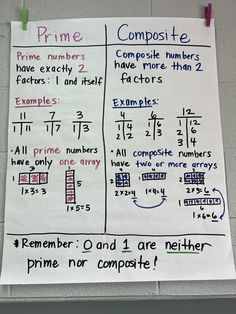 Prime
Prime numbers
have exactly 2
factors: 1 and itself
Examples:
11 7 3
1 11 1 7 1 3
• All prime numbers
have only one array
1x3=3
1x5=5
Composite
Composite numbers
have more than 2
factors
Examples:
4 6 12
1 4 1 6 1 12
2 2 3 2 6
3 4
• All composite numbers
have two or more arrays
2x2=4 1x4=4 2x3=6
1x6=6
* Remember: 0 and 1 are neither
prime nor composite!